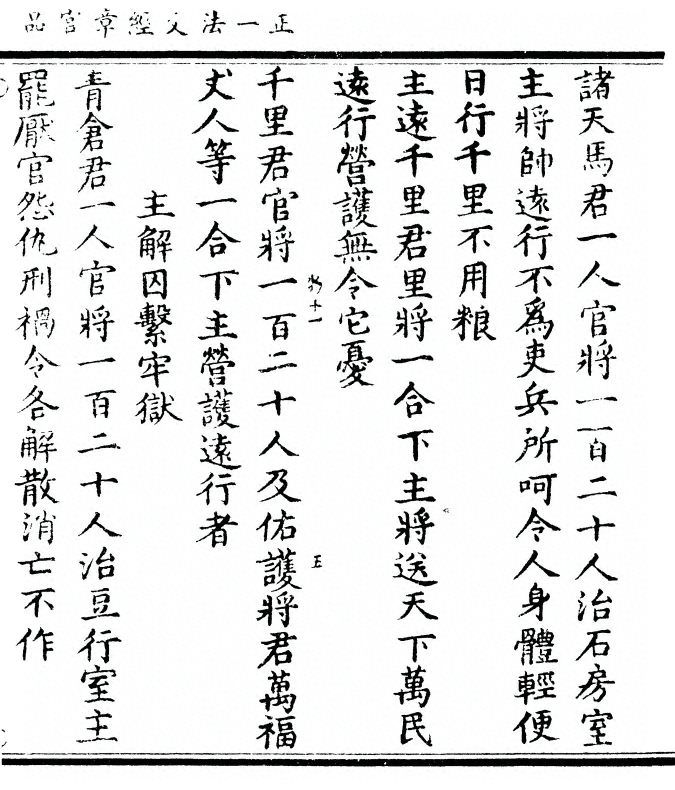 正一法文經章官品
諸天馬君一人官將一百二十人治石房室
主將帥遠行不爲吏兵所呵令人身體輕便
日行千里不用粮
主遠千里君里將一合下主將送天下萬民
遠行營護無令它憂
千里君官將一百二十人及佑護將君萬福
丈人等一合下主營護遠行者
主解囚繫牢獄
青倉君一人官將一百二十人治豆行室主
罷厭官怨仇刑禍令各解散消亡不作